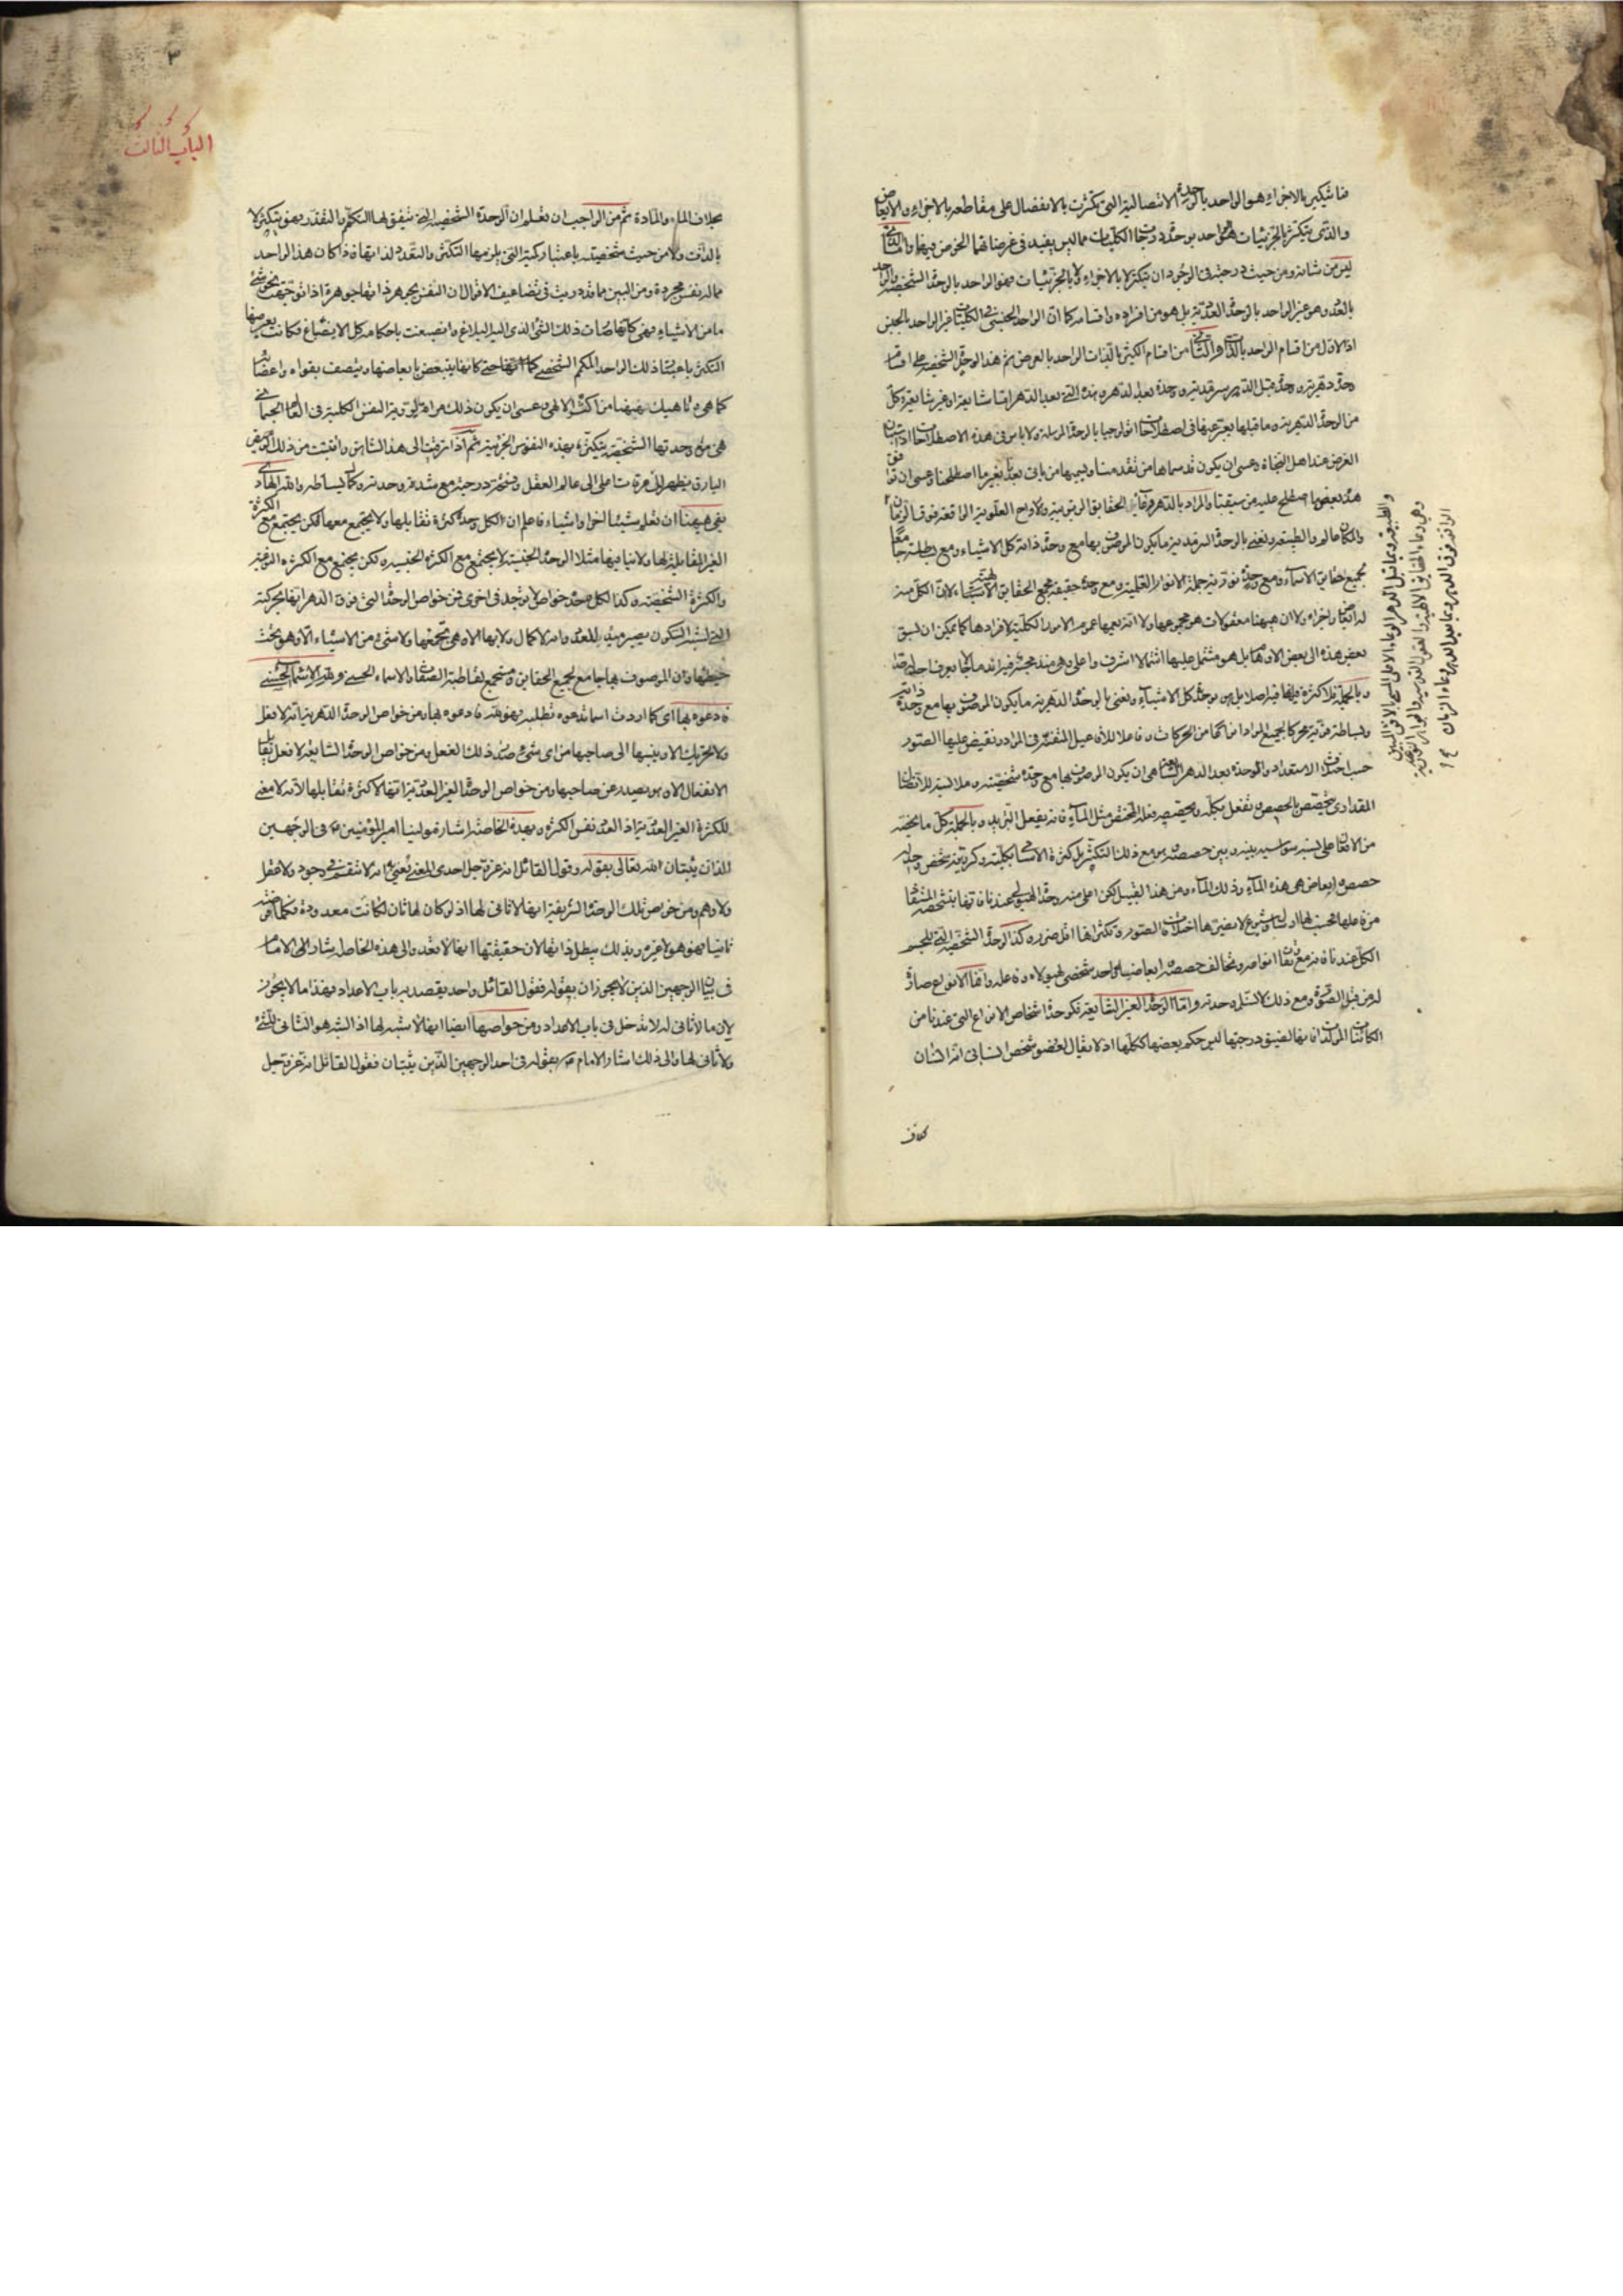 فما يتكثر بالاجزاء هو الواحد بالوحدة الاتصالية التى تكثرت بالانفصال على مقاطعه بالاجزاء والابعاض
والذى يتكثر بالجزئيات هو الواحد بوحدة درجات الكليات مما ليس يفيد فى غرضنا هذا الخوض فيها واما الذى
ليس من شانه ومن حيث درجته فى الوجود ان يتكثر لا بالاجزاء ولا بالجزئيات فهو الواحد بالوحدة الشخصية والواحد
بالعدد وهو غير الواحد بالوحدة العددية بل هو من افراده واقسامه كما ان الواحد الجنسى فى الكليات غير الواحد بالجنس
اذ الاول من اقسام الواحد بالذات والثانى من اقسام الكثير بالذات الواحد بالعرض ثم هذا الوحدة الشخصية على اقسام
وحدة دهرية ووحدة قبل الدهر سرمدية ووحدة بعد الدهر وهذه التى بعد الدهر اما شايعة او غير شايعة وكل
من الوحدة الدهرية وما قبلها يعبر عنها فى اصطلاحات اثولوجيا بالوحدة المرسلة ولا باس فى هذه الاصطلاحات اذا تبين
الغرض عند اهل النجاة وعسى ان يكون قد سماها من تقدمنا ويسميها من ياتى بعدنا بغير ما اصطلحنا وعسى ان توافق
هذه بعض ما اصطلح عليه من سبقنا والمراد بالدهر وعاء الحقايق الربوبية والارواح العلوية الواقعة فوق الزمان
والمكان عالم والطبيعة ونعنى بالوحدة السرمدية ما يكون الموصوف بها مع وحدة ذاته كل الاشياء ومع بساطته جامعا
لجميع حقايق الاسماء ومع وحدة نورية جملة الانوار العقلية ومع وحدة حقيقة مجمع الحقايق الاشياء لان الكل منه
له ابعاض واجزاء ولا ان هيهنا معقولات هو مجموعها ولا انه يعمها عموم الامور الكلية لافرادها كما يمكن ان يسبق
بعض هذه الى بعض الاوهام بل هو مشتمل عليها اشتمالا اشرف واعلى وهى منه مجتمعة فيه
وبالجملة فلا كثرة فيها فيه اصلا بل هى بوحدة كل الاشياء ونعنى بالوحدة الدهرية ما يكون الموصوف بها مع وحدة ذاته
وبساطة قوته محركا بجميع المواد انواعا من الحركات وفاعلا للافاعيل المتفننة فى المواد ونفيض عليها الصور
حسب اختلاف الاستعداد والوحدة بعد الدهر الشايعة هى ان يكون الموصوف بها مع وحدة شخصيته
المقدارى يتخصص بالحصص وتفعل بكله وبحصصه فعله المختص مثل الماء فانه يفعل التبريد وبالجملة كل ما يخصه
من الاثار على نسبة سواسية بينه وبين حصصه وهو مع ذلك التكثر بل كثرة الاسماء بكليته وكريته شخص واحد له
حصص وابعاض هى هذه الماء وذلك الماء ومن هذا القبيل لكن اعلى منه وحدة الهيولى عندنا
من فاعلها تحسب لها اولا شيوع لا يضرها اختلاف الصور وتكثرها اقل ضرر وكذا الوحدة الشخصية التى للجسم
الكل عندنا فانه مع بقاء انواعه وتخالف حصصه وابعاضه واحد شخصى لهيولاه
له من قبل الصورة ومع ذلك لا تنثلم وحدته واما الوحدة الغير الشايعة فكوحدة اشخاص الانواع التى عندنا من
الكائنات المركبات فانها لضيق درجتها ليس حكم بعضها ككلها اذ لا يقال لعضو شخص انسانى انه انسان
بخلاف
والطبيعة وما قبل الدهر الوعاء الاعلى
وهى وعاء الحقايق الالهية والعقول القدسية
الواقعة فوق الدهر وما بعد الدهر وعاء الزمان
٣
الباب الثالث
بخلاف الماء والمادة ثم من الواجب ان تعلم ان الوحدة الشخصية التى تتفق لها التكمم والتقدر فهى يتكثر لا
بالذات ولا من حيث شخصيته باعتبار كمية التى يلزمها التكثر والتعدد لذاتها فاذا كان هذا الواحد
مما له نفس مجردة ومن المبين مما قد دريت فى تضاعيف الاقوال ان النفس بجوهر ذاتها جوهرة اذا توجهت نحو شئ
ما من الاشياء فهى كانها صارت ذلك الشئ الذى اليه البلاغ وانصبغت باحكامه كل الانصباغ فكانت يعرضها
التكثر باعتبار ذلك الواحد المكمم الشخصى كما انها حتى كانها يتبعض بابعاضها ويتصف بقواه واعضائه
كما هى وناهيك بهيهنا من اكثر الالهى وعسى ان يكون ذلك مراة لرؤية النفس الكلية فى العالم الجسمانى
هى مع وحدتها الشخصية يتكثر بهذه النفوس الجزئية ثم اذا ترقيت الى هذا الشاهق واقتبست من ذلك الوميض
البارق فيظهر لك مرقاة اعلى الى عالم العقل وتخبر درجته مع شدة وحدته وكمال بساطته والله الهادى
بقى هيهنا ان تعلم شيئا اخر او اشياء فاعلم ان لكل وحدة كثرة تقابلها ولا يجتمع معها لكن يجتمع مع الكثرة
الغير المقابلة لها ولا ينافيها مثلا الوحدة الجنسية لا يجتمع مع الكثرة الجنسية ولكن يجتمع مع الكثرة النوعية
والكثرة الشخصية وكذا لكل وحدة خواص لا يوجد فى اخرى فمن خواص الوحدة التى فوق الدهر انها محركة
التى لشبه السكون يصير مبدء للعدد وانه لا كمال ولا بهاء الا وهى تجمعها ولا شئ من الاشياء الا وهو تحت
حيطتها وان الموصوف بها جامع لجميع الحقايق ومستجمع لقاطبة الصفات والاسماء الحسنى وله الاسماء الحسنى
فادعوه بها اى كما اردت اسما تدعوه تطلبه فهو له فادعوه بها ومن خواص الوحدة الدهرية انه لا فعل
ولا تحريك الا وينسبها الى صاحبها من اى شئ صدر ذلك الفعل ومن خواص الوحدة الشايعة لا فعل يقابل
الانفعال الا وهو يصدر عن صاحبها ومن خواص الوحدة الغير العددية انها لا كثرة تقابلها لانه لا معنى
للكثرة الغير العددية اذ العدد نفس الكثرة وبهذه الخاصة اشار مولينا امير المؤمنين ع فى الوجهين
اللذان يثبتان الله تعالى بقوله وقول القائل انه عز وجل احدى المعنى يعنى انه لا ينقسم فى وجود ولا عقل
ولا وهم ومن خواص تلك الوحدة الشريفة انها لا ثانى لها اذ لو كان لها ثان لكانت معدودة فكلما فرضته
ثانيا فهو هو لا غيره وبذلك يبطل ذاتها لان حقيقتها انها لا تعدد والى هذه الخاصة اشار الى الامام
فى بيان الوجهين الذين لا يجوزان بقوله فقول القائل واحد يقصد به باب الاعداد فهذا ما لا يجوز
لان ما لا ثانى له لا يدخل فى باب الاعداد ومن خواصها ايضا انها لا شبه لها اذ الشبه هو الثانى للشئ
ولا ثانى لها والى ذلك اشار الامام ع بقوله فى احد الوجهين الذين يثبتان فقول القائل انه عز وجل